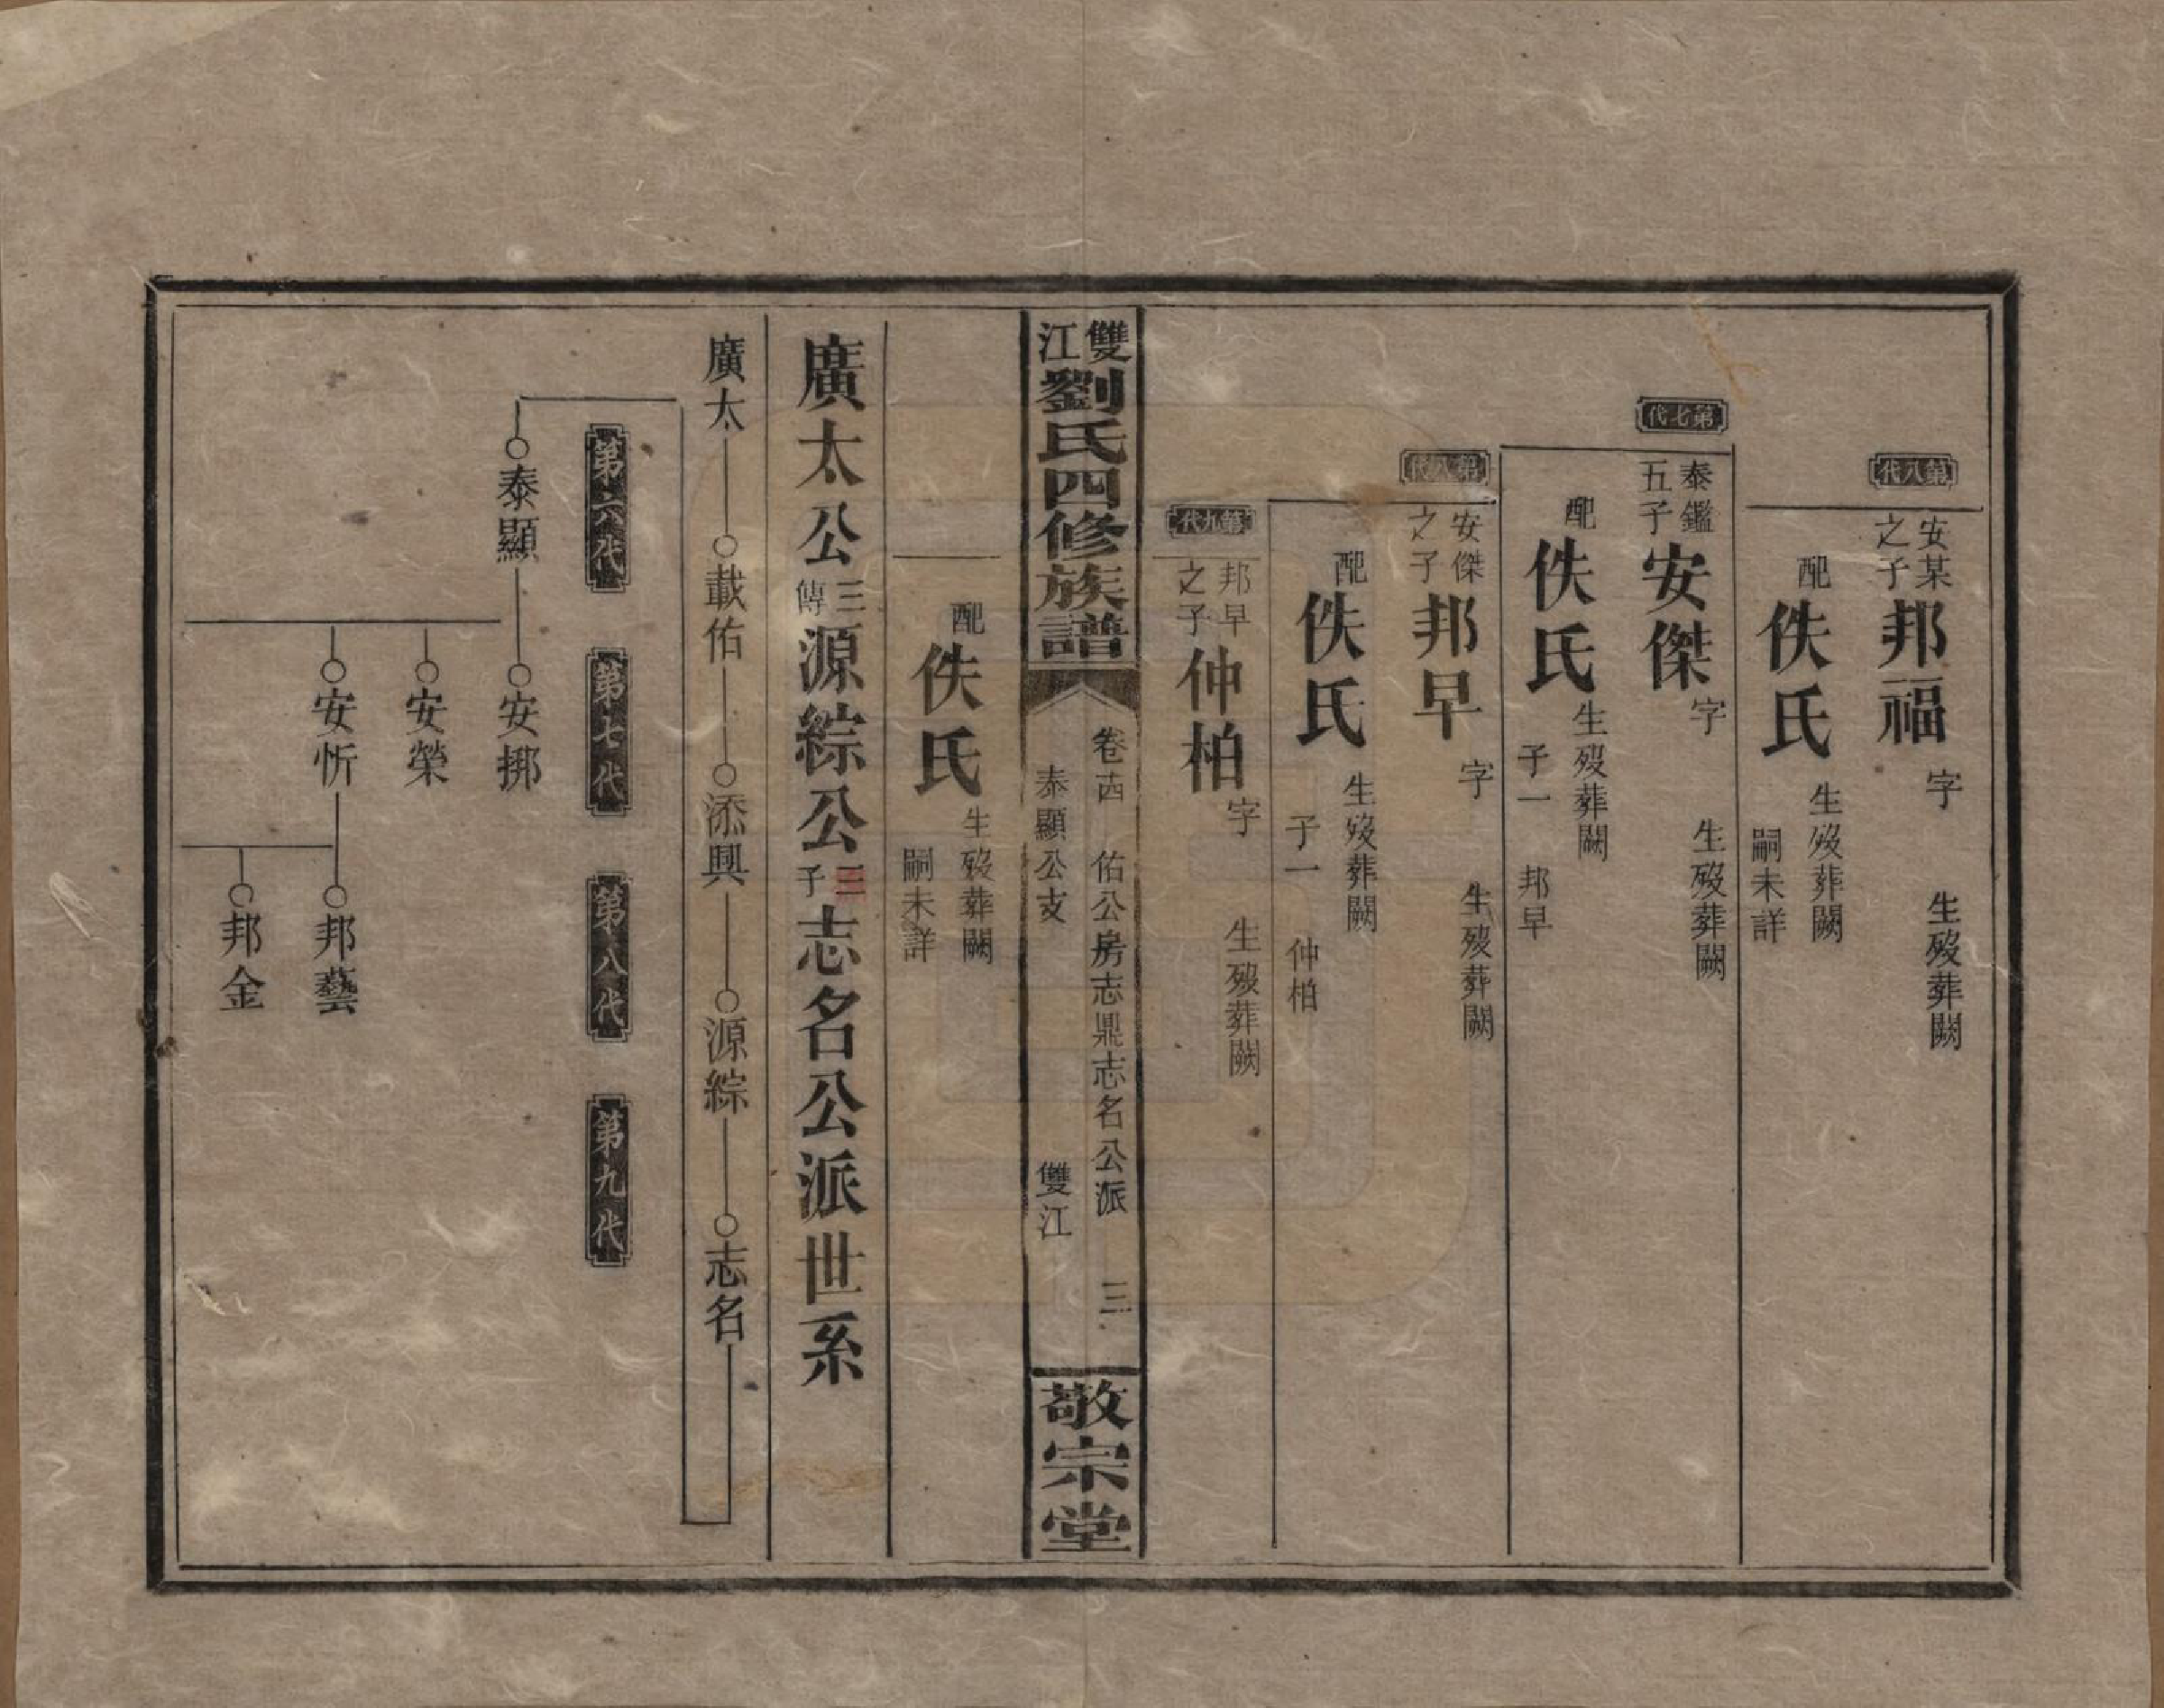 第八代
安某之子邦福字 生歿葬闕
配佚氏生歿葬闕
嗣未詳
第七代
泰鑑五子安傑字 生歿葬闕
配佚氏生歿葬闕
子一 邦早
第八代
安傑之子邦早字 生歿葬闕
配佚氏生歿葬闕
子一 仲柏
第九代
邦早之子仲柏字 生歿葬闕
雙江劉氏四修族譜
卷 佑公房志鼎志名公派 三
泰顯公支 雙江
敬宗堂
配佚氏生歿葬闕
嗣未詳
廣太公三傳源綜公三子志名公派世系
廣太 載佑 添興 源綜 志名
第六代 第七代 第八代 第九代
泰顯 安挪
安榮
安忻 邦藝
邦金